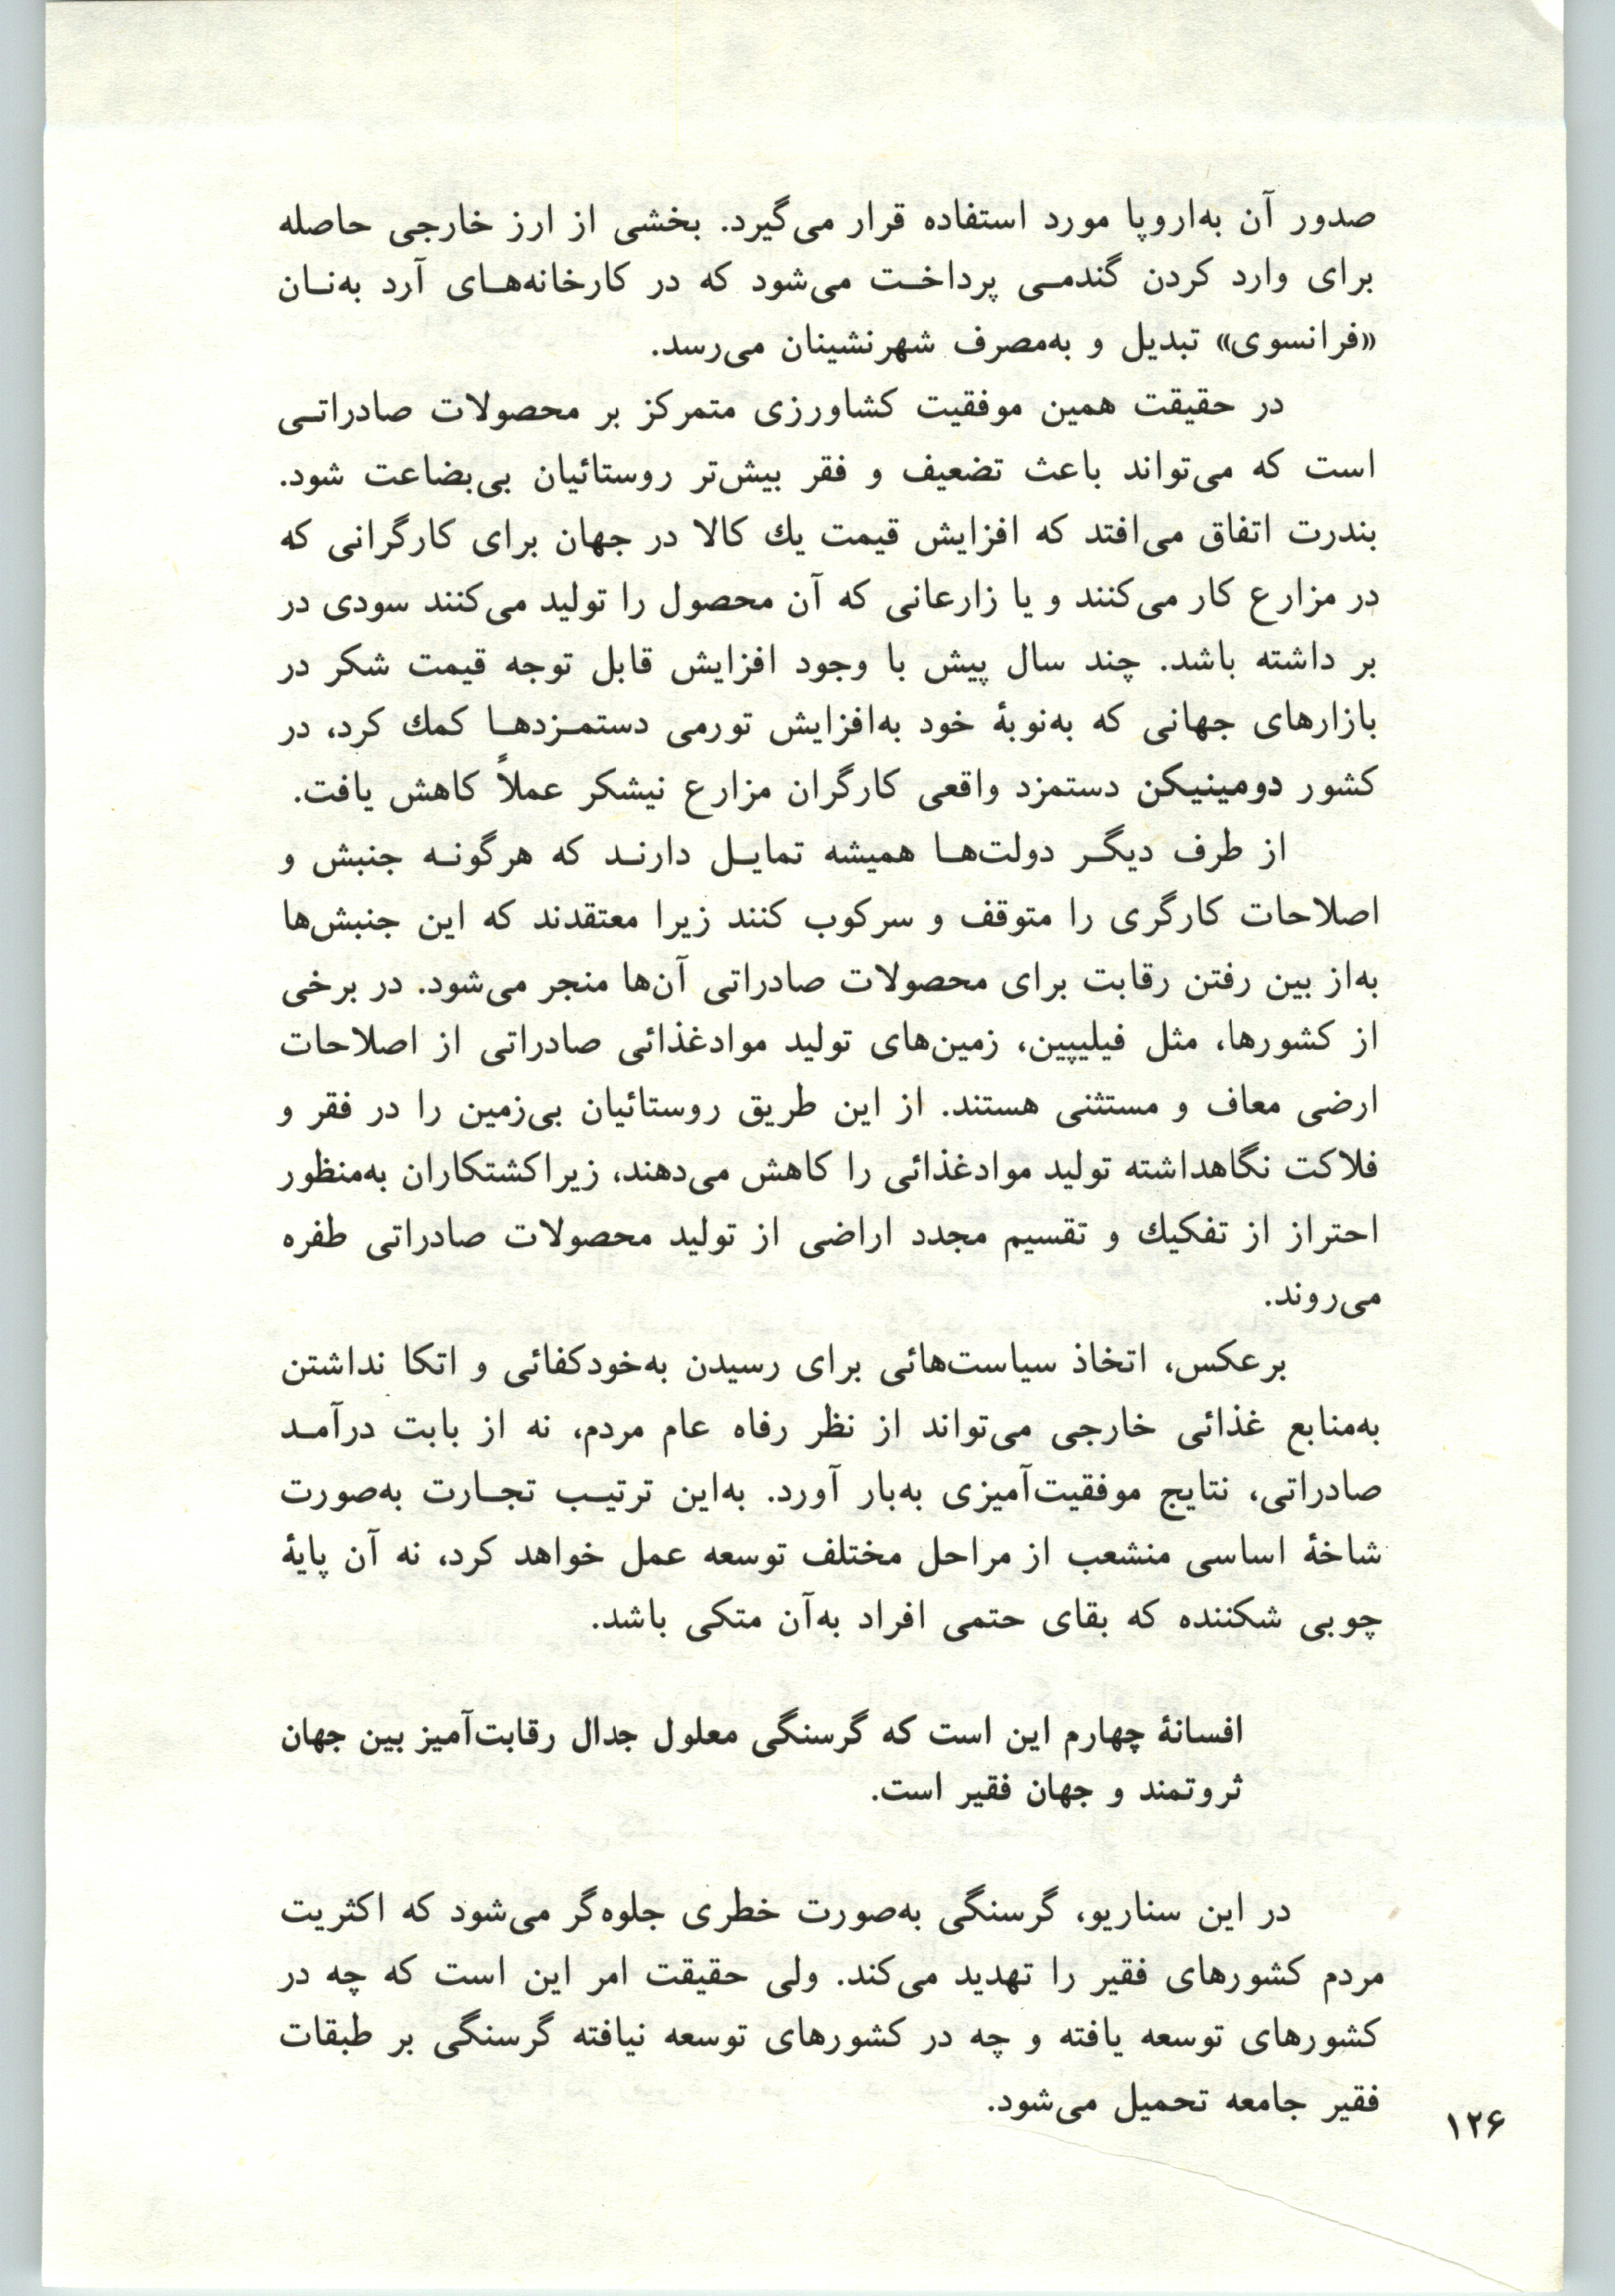 صدور آن به‌اروپا مورد استفاده قرار می‌گیرد. بخشی از ارز خارجی حاصله
برای وارد کردن گندمی پرداخت می‌شود که در کارخانه‌های آرد به‌نان
«فرانسوی» تبدیل و به‌مصرف شهرنشینان می‌رسد.
در حقیقت همین موفقیت کشاورزی متمرکز بر محصولات صادراتی
است که می‌تواند باعث تضعیف و فقر بیش‌تر روستائیان بی‌بضاعت شود.
بندرت اتفاق می‌افتد که افزایش قیمت یك کالا در جهان برای کارگرانی که
در مزارع کار می‌کنند و یا زارعانی که آن محصول را تولید می‌کنند سودی در
بر داشته باشد. چند سال پیش با وجود افزایش قابل توجه قیمت شکر در
بازارهای جهانی که به‌نوبهٔ خود به‌افزایش تورمی دستمزدها کمك کرد، در
کشور دومینیکن دستمزد واقعی کارگران مزارع نیشکر عملاً کاهش یافت.
از طرف دیگر دولت‌ها همیشه تمایل دارند که هرگونه جنبش و
اصلاحات کارگری را متوقف و سرکوب کنند زیرا معتقدند که این جنبش‌ها
به‌از بین رفتن رقابت برای محصولات صادراتی آن‌ها منجر می‌شود. در برخی
از کشورها، مثل فیلیپین، زمین‌های تولید موادغذائی صادراتی از اصلاحات
ارضی معاف و مستثنی هستند. از این طریق روستائیان بی‌زمین را در فقر و
فلاکت نگاهداشته تولید موادغذائی را کاهش می‌دهند، زیراکشتکاران به‌منظور
احتراز از تفکیك و تقسیم مجدد اراضی از تولید محصولات صادراتی طفره
می‌روند.
برعکس، اتخاذ سیاست‌هائی برای رسیدن به‌خودکفائی و اتکا نداشتن
به‌منابع غذائی خارجی می‌تواند از نظر رفاه عام مردم، نه از بابت درآمد
صادراتی، نتایج موفقیت‌آمیزی به‌بار آورد. به‌این ترتیب تجارت به‌صورت
شاخهٔ اساسی منشعب از مراحل مختلف توسعه عمل خواهد کرد، نه آن پایهٔ
چوبی شکننده که بقای حتمی افراد به‌آن متکی باشد.
افسانهٔ چهارم این است که گرسنگی معلول جدال رقابت‌آمیز بین جهان
ثروتمند و جهان فقیر است.
در این سناریو، گرسنگی به‌صورت خطری جلوه‌گر می‌شود که اکثریت
مردم کشورهای فقیر را تهدید می‌کند. ولی حقیقت امر این است که چه در
کشورهای توسعه یافته و چه در کشورهای توسعه نیافته گرسنگی بر طبقات
فقیر جامعه تحمیل می‌شود.
۱۲۶